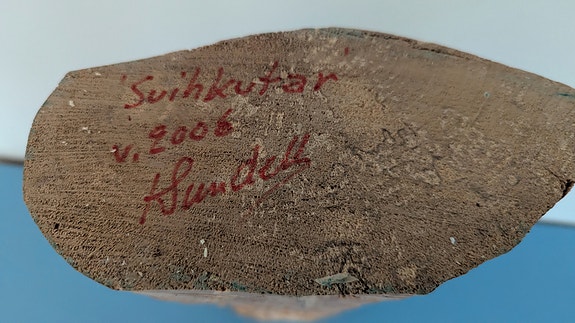 'Suihkutar'
v. 2006
H Sundell